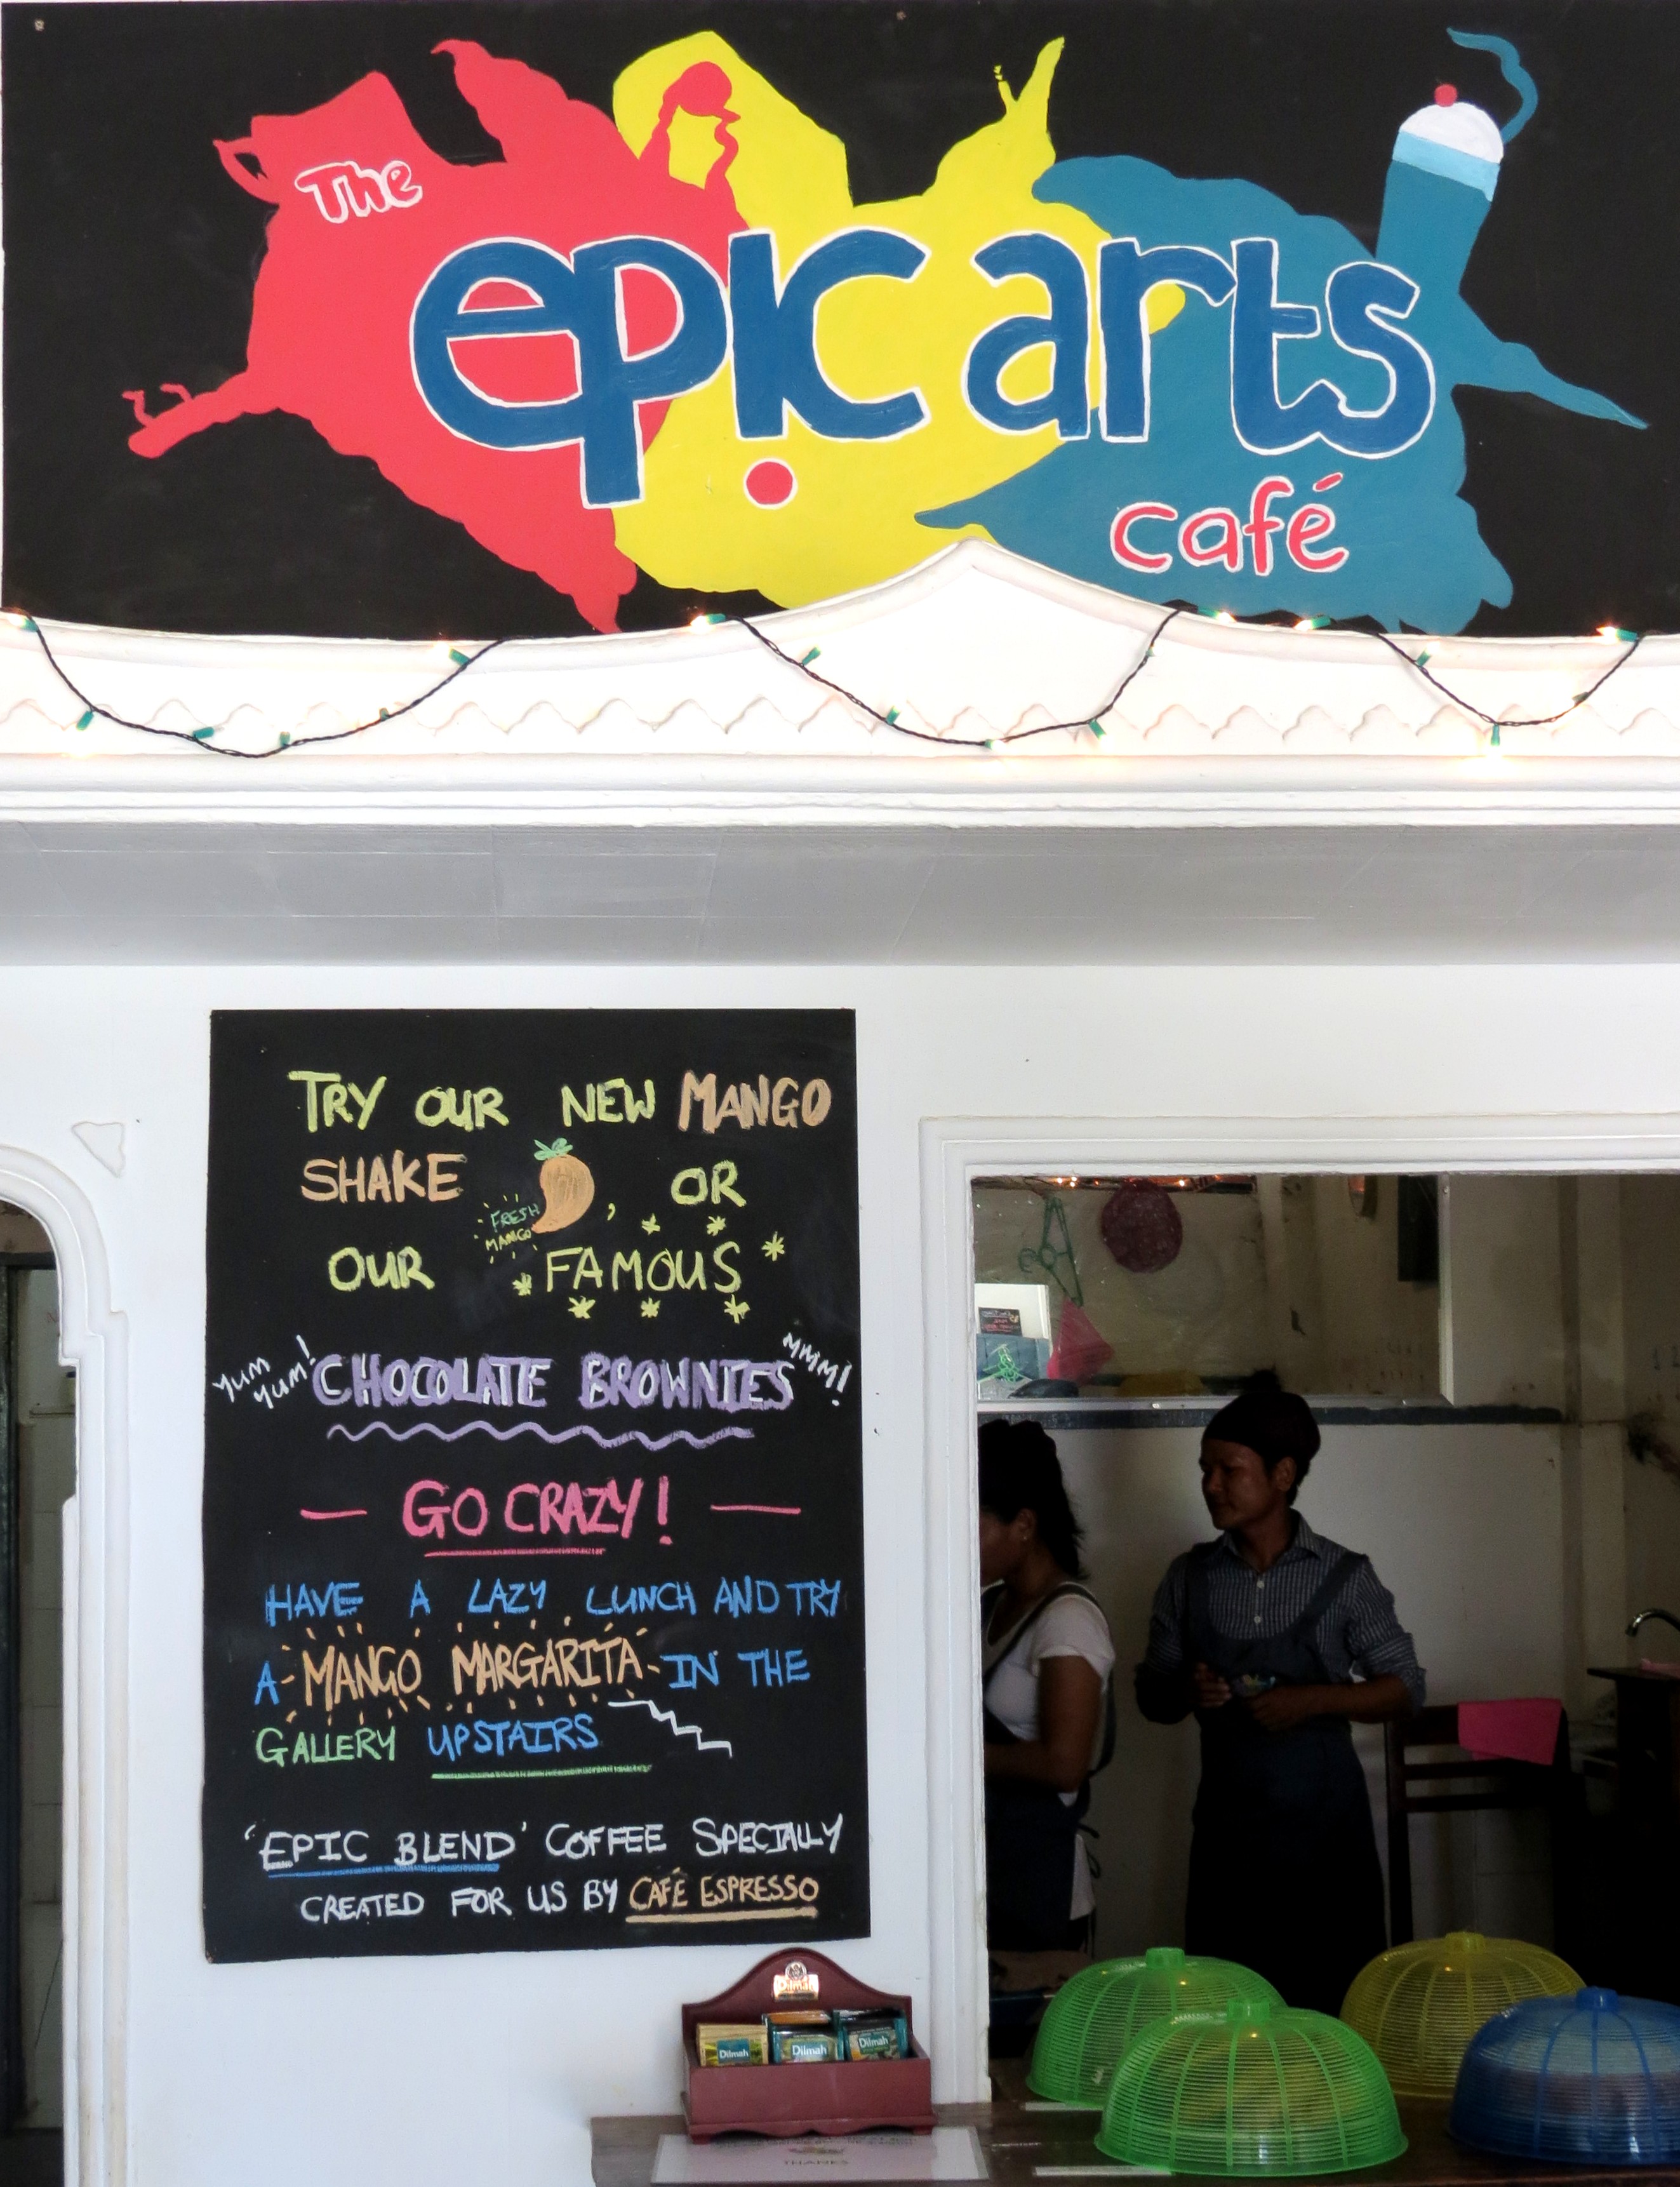 The
epic arts
café
TRY OUR NEW MANGO
SHAKE , OR
FRESH
MANGO
OUR FAMOUS
YUM
YUM!
CHOCOLATE BROWNIES
MMM!
GO CRAZY!
HAVE A LAZY LUNCH AND TRY
A MANGO MARGARITA IN THE
GALLERY UPSTAIRS
'EPIC BLEND' COFFEE SPECIALLY
CREATED FOR US BY CAFÉ ESPRESSO
Dilmah
Dilmah
Dilmah
Dilmah
THANKS